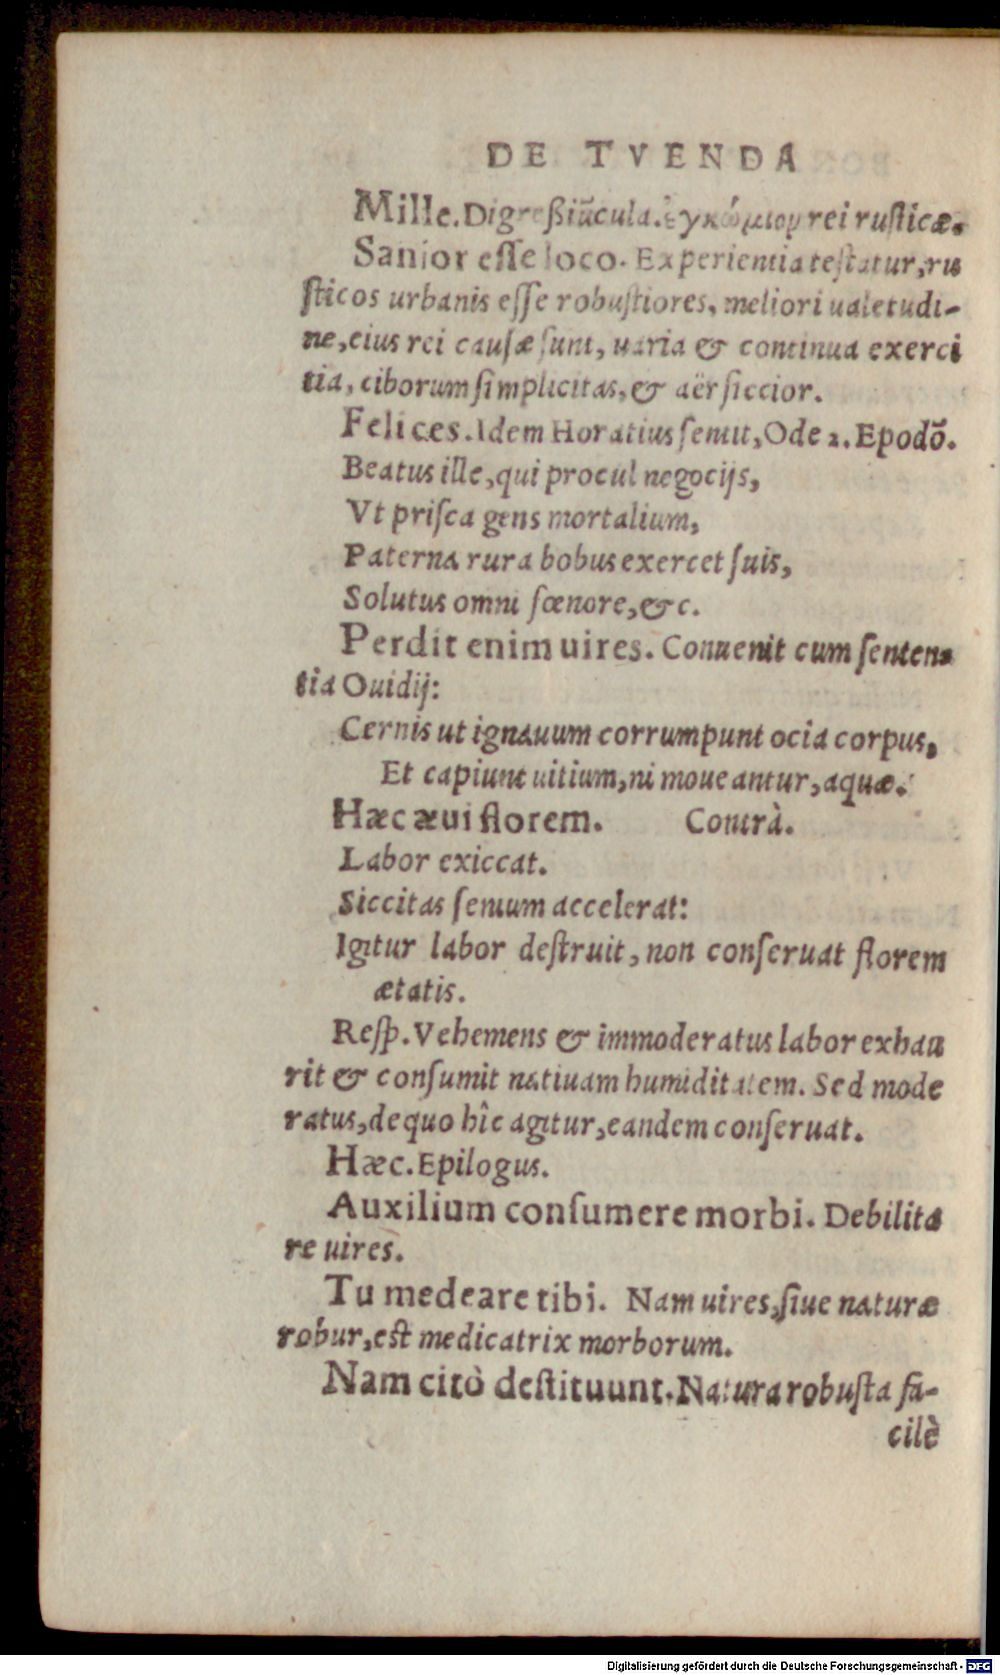 DE TVENDA
Mille. Digreßiũcula. ἐγκώμιον rei ruſticæ.
Sanior eſſe loco. Experientia teſtatur, ru
ſticos urbanis eſſe robuſtiores, meliori ualetudi-
ne, eius rei cauſæ ſunt, uaria & continua exerci
tia, ciborum ſimplicitas, & aër ſiccior.
Felices. Idem Horatius ſentit, Ode 2. Epodō.
Beatus ille, qui procul negocijs,
Vt priſca gens mortalium,
Paterna rura bobus exercet ſuis,
Solutus omni fœnore, &c.
Perdit enim uires. Conuenit cum ſenten-
tia Ouidij:
Cernis ut ignauum corrumpunt ocia corpus,
Et capiunt uitium, ni moueantur, aquæ.
Hæc æui florem. Contrà.
Labor exiccat.
Siccitas ſenium accelerat:
Igitur labor deſtruit, non conſeruat florem
ætatis.
Reſp. Vehemens & immoderatus labor exhau
rit & conſumit natiuam humiditatem. Sed mode
ratus, de quo hîc agitur, eandem conſeruat.
Hæc. Epilogus.
Auxilium conſumere morbi. Debilita
re uires.
Tu medeare tibi. Nam uires, ſiue naturæ
robur, eſt medicatrix morborum.
Nam citò deſtituunt. Natura robuſta fa-
cilè
Digitalisierung gefördert durch die Deutsche Forschungsgemeinschaft - DFG